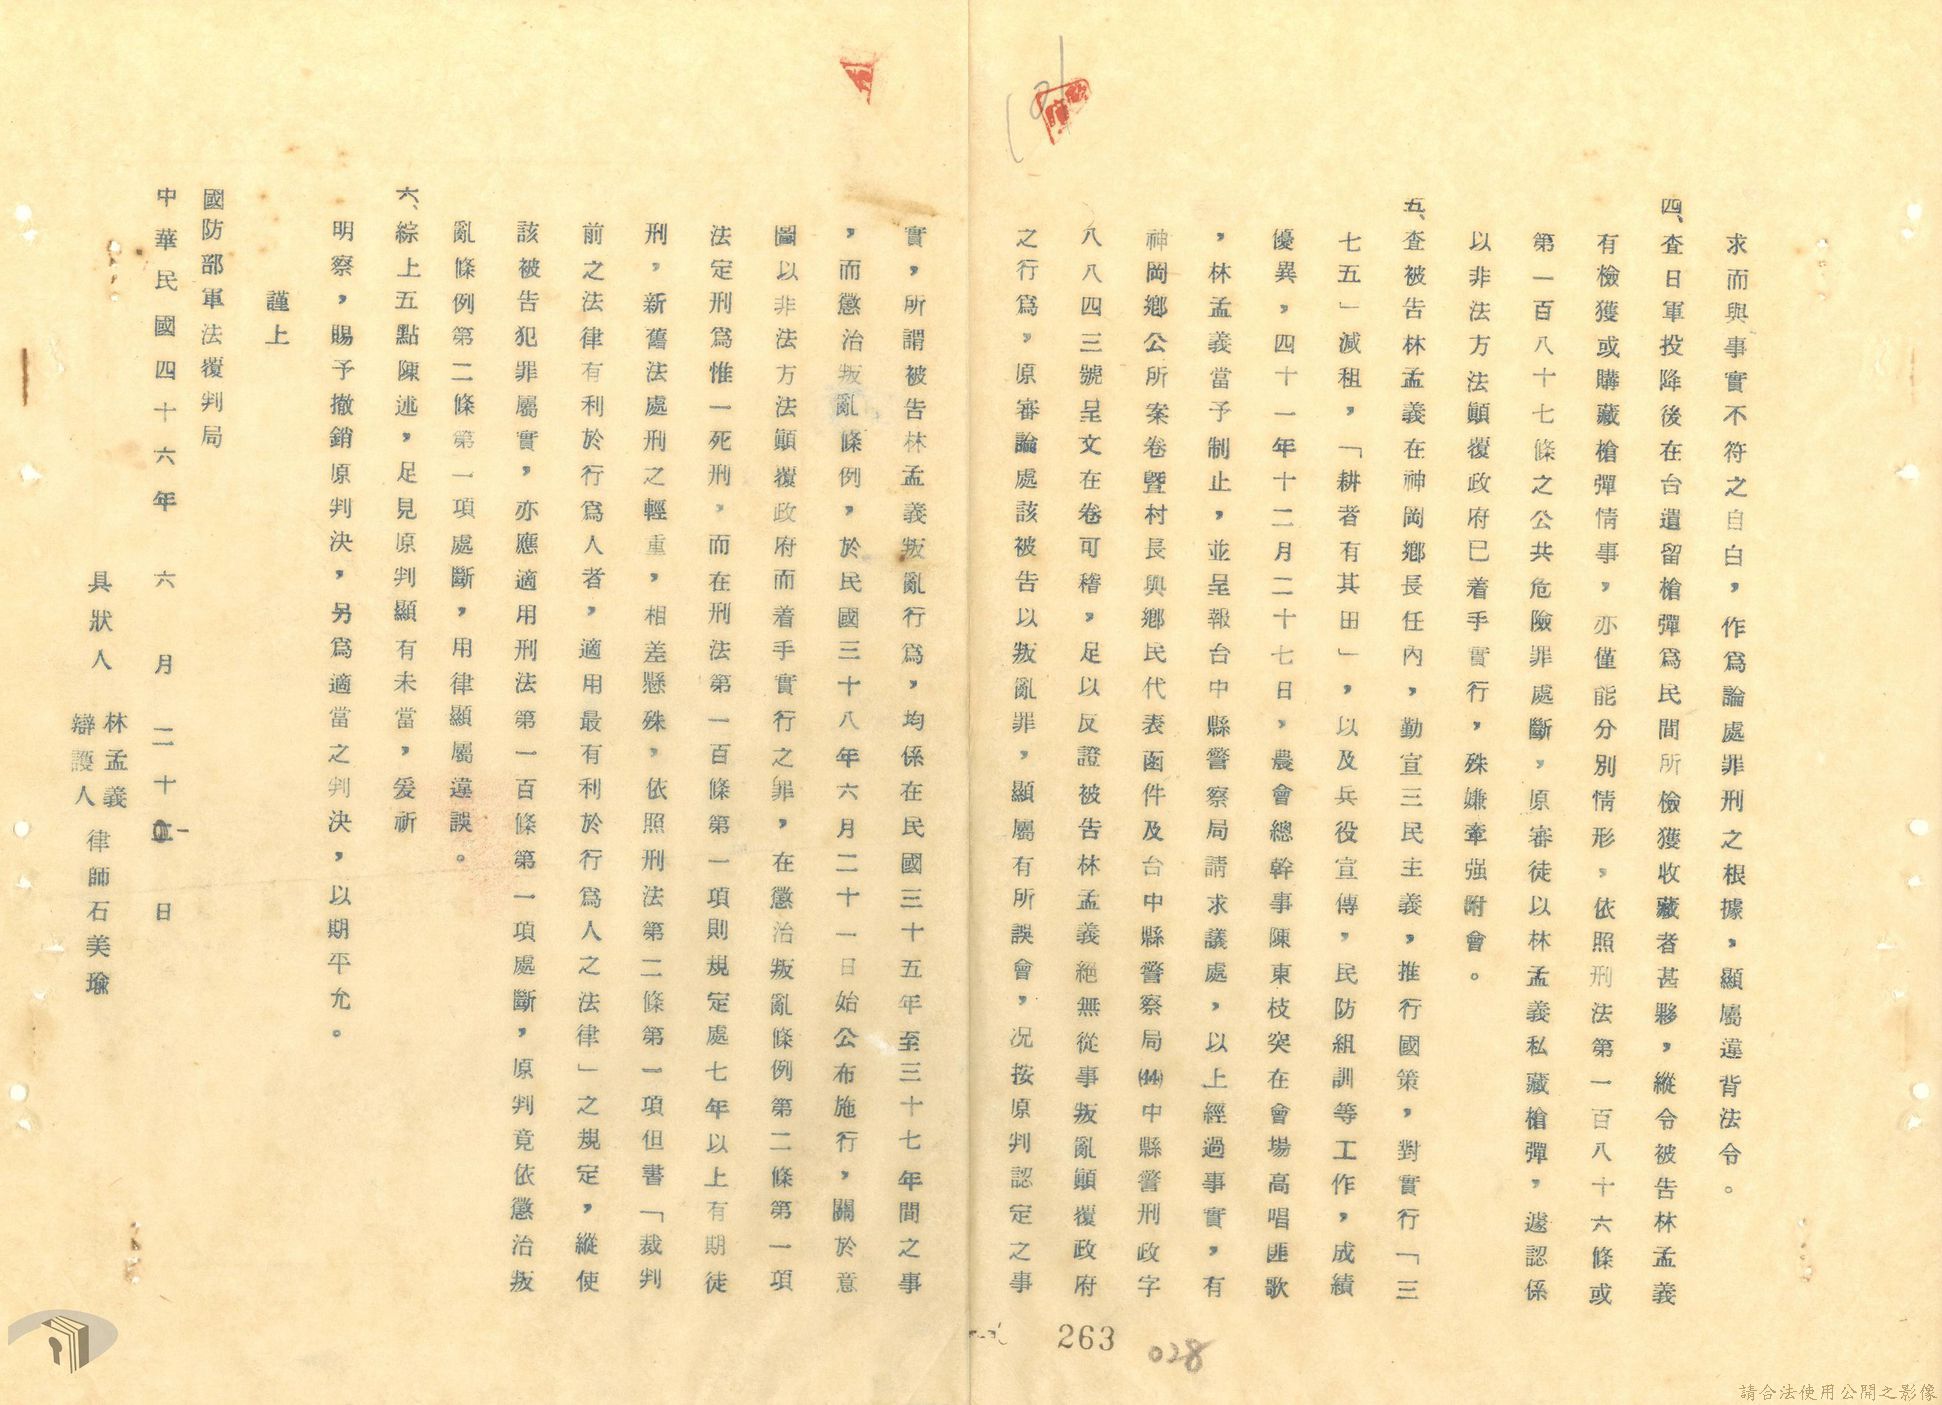 求而與事實不符之自白，作爲論處罪刑之根據，顯屬違背法令。
四、查日軍投降後在台遺留槍彈爲民間所檢獲收藏者甚夥，縱令被告林孟義
有檢獲或購藏槍彈情事，亦僅能分別情形，依照刑法第一百八十六條或
第一百八十七條之公共危險罪處斷，原審徒以林孟義私藏槍彈，遽認係
以非法方法顚覆政府已着手實行，殊嫌牽强附會。
五、查被告林孟義在神岡鄉長任內，勤宣三民主義，推行國策，對實行「三
七五」減租，「耕者有其田」，以及兵役宣傳，民防組訓等工作，成績
優異，四十一年十二月二十七日，農會總幹事陳東枝突在會場高唱匪歌
，林孟義當予制止，並呈報台中縣警察局請求議處，以上經過事實，有
神岡鄉公所案卷暨村長與鄉民代表函件及台中縣警察局(44)中縣警刑政字
八八四三號呈文在卷可稽，足以反證被告林孟義絕無從事叛亂顚覆政府
之行爲，原審論處該被告以叛亂罪，顯屬有所誤會，況按原判認定之事
實，所謂被告林孟義叛亂行爲，均係在民國三十五年至三十七年間之事
，而懲治叛亂條例，於民國三十八年六月二十一日始公布施行，關於意
圖以非法方法顚覆政府而着手實行之罪，在懲治叛亂條例第二條第一項
法定刑爲惟一死刑，而在刑法第一百條第一項則規定處七年以上有期徒
刑，新舊法處刑之輕重，相差懸殊，依照刑法第二條第一項但書「裁判
前之法律有利於行爲人者，適用最有利於行爲人之法律」之規定，縱使
該被告犯罪屬實，亦應適用刑法第一百條第一項處斷，原判竟依懲治叛
亂條例第二條第一項處斷，用律顯屬違誤。
六、綜上五點陳述，足見原判顯有未當，爰祈
明察，賜予撤銷原判決，另爲適當之判決，以期平允。
謹上
國防部軍法覆判局
中華民國四十六年六月二十一日
具狀人 林孟義
辯護人 律師石美瑜
263
028
請合法使用公開之影像